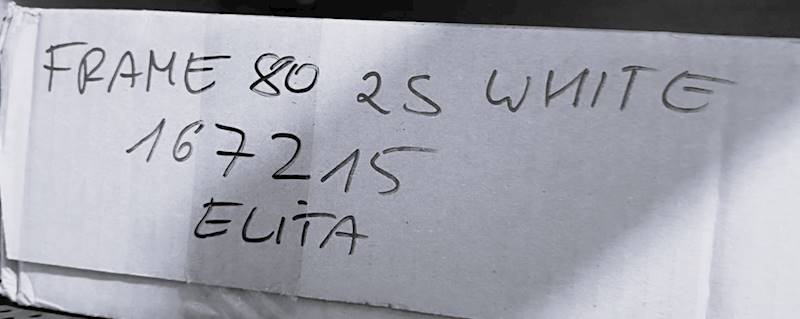 FRAME 80 2S WHITE
167215
ELITA